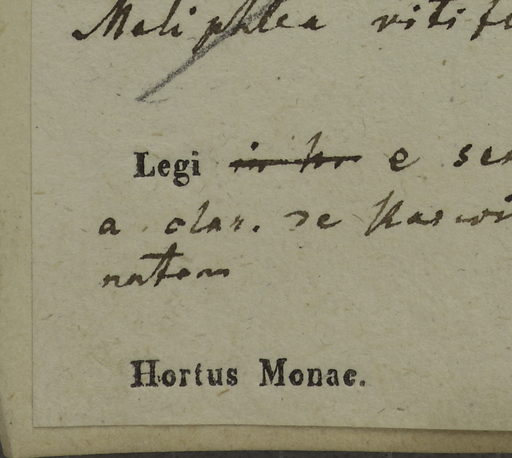 Maliphlea vitif
Legi in hr e se
a clar. de Karwi
natam
Hortus Monac.